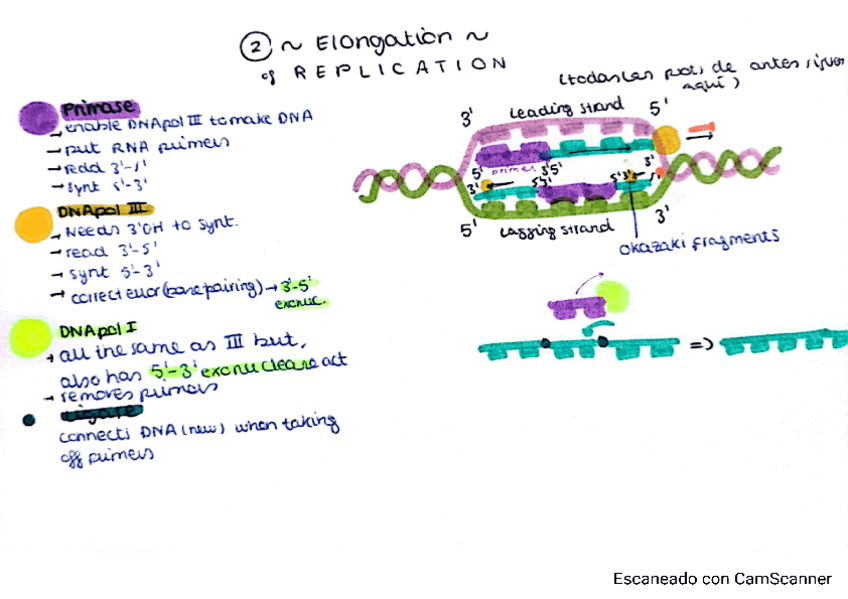 ② ~ Elongation ~
of REPLICATION
(todas las prots de antes siguen
aquí)
Primase
→ enable DNApol III to make DNA
→ put RNA primers
→ read 3'-5'
→ synt 5'-3'
DNApol III
→ Needs 3'OH to synt.
→ read 3'-5'
→ synt 5'-3'
→ correct error (base pairing) → 3'-5'
exonuc.
DNApol I
→ all the same as III but,
also has 5'-3' exonuclease act
→ removes primers
Ligase
connects DNA (new) when taking
off primers
3' Leading strand 5'
5' primer 3'5' 3'
3' 5'3' 5'3' 5'
5' Lagging strand 3'
Okazaki fragments
=>
Escaneado con CamScanner